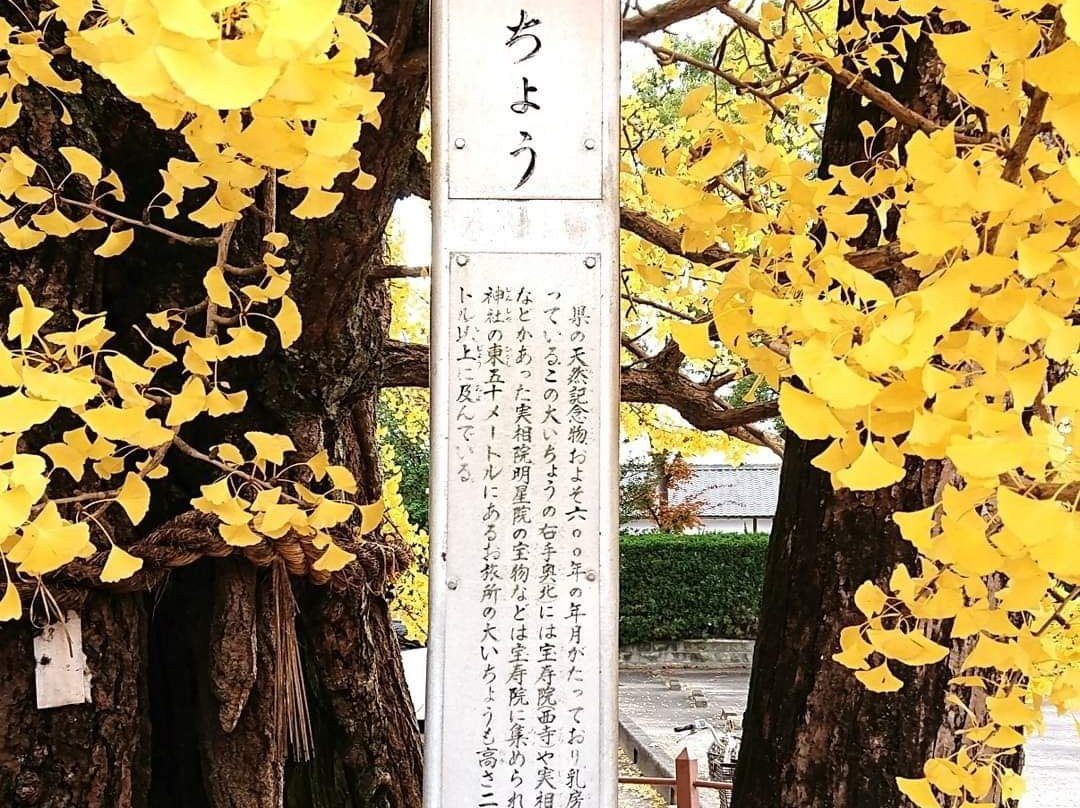 ちょう
県の天然記念物およそ六〇〇年の年月がたっており乳房
っているこの大いちょうの右手奥北には宝寿院西寺や実相
などがあった実相院明星院の宝物などは宝寿院に集められ
神社の東五十メートルにあるお旅所の大いちょうも高さ二
トル以上に及んでいる